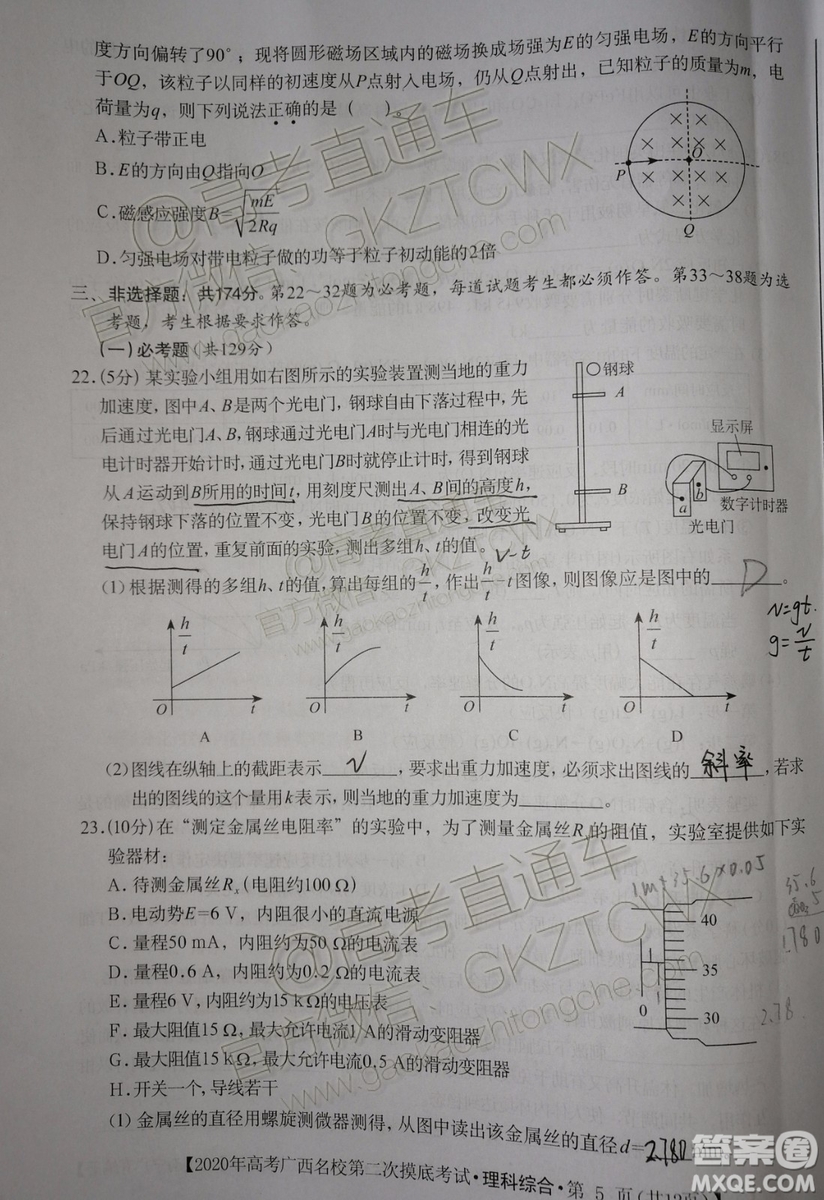 度方向偏转了90°；现将圆形磁场区域内的磁场换成场强为E的匀强电场，E的方向平行
于OQ，该粒子以同样的初速度从P点射入电场，仍从Q点射出，已知粒子的质量为m，电
荷量为q，则下列说法正确的是（　　）。
A.粒子带正电
B.E的方向由Q指向O
C.磁感应强度B=√(mE/2Rq)
D.匀强电场对带电粒子做的功等于粒子初动能的2倍
P
O
Q
三、非选择题：共174分。第22～32题为必考题，每道试题考生都必须作答。第33～38题为选
考题，考生根据要求作答。
(一)必考题(共129分)
22.(5分)某实验小组用如右图所示的实验装置测当地的重力
加速度，图中A、B是两个光电门，钢球自由下落过程中，先
后通过光电门A、B，钢球通过光电门A时与光电门相连的光
电计时器开始计时，通过光电门B时就停止计时，得到钢球
从A运动到B所用的时间t，用刻度尺测出A、B间的高度h，
保持钢球下落的位置不变，光电门B的位置不变，改变光
电门A的位置，重复前面的实验，测出多组h、t的值。
钢球
A
B
显示屏
a
b
数字计时器
光电门
v-t
(1)根据测得的多组h、t的值，算出每组的h/t，作出h/t-t图像，则图像应是图中的 D 。
v=gt.
g=v/t
h/t O t
h/t O t
h/t O t
h/t O t
A B C D
(2)图线在纵轴上的截距表示 v ，要求出重力加速度，必须求出图线的 斜率 ，若求
出的图线的这个量用k表示，则当地的重力加速度为______。
23.(10分)在“测定金属丝电阻率”的实验中，为了测量金属丝Rx的阻值，实验室提供如下实
验器材：
A.待测金属丝Rx(电阻约100 Ω)
B.电动势E=6 V，内阻很小的直流电源
C.量程50 mA，内阻约为50 Ω的电流表
D.量程0.6 A，内阻约为0.2 Ω的电流表
E.量程6 V，内阻约为15 kΩ的电压表
F.最大阻值15 Ω，最大允许电流1 A的滑动变阻器
G.最大阻值15 kΩ，最大允许电流0.5 A的滑动变阻器
H.开关一个，导线若干
35.6×0.05
35.6
1.780
2.78
40
35
30
0
(1)金属丝的直径用螺旋测微器测得，从图中读出该金属丝的直径d=2.780
【2020年高考广西名校第二次摸底考试·理科综合·第 5 页
@高考直通车
官方微信：GKZTCWX
www.gaokaozhitongche.com
@高考直通车
官方微信：GKZTCWX
www.gaokaozhitongche.com
@高考直通车
官方微信：GKZTCWX
www.gaokaozhitongche.com
答案圈
MXQE.COM